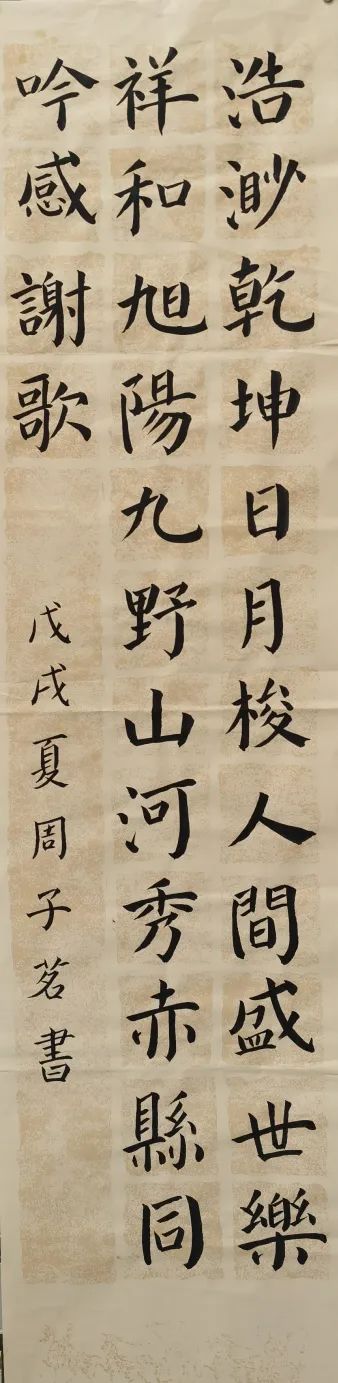 浩渺乾坤日月梭人間盛世樂
祥和旭陽九野山河秀赤縣同
吟感謝歌
戊戌夏周子茗書